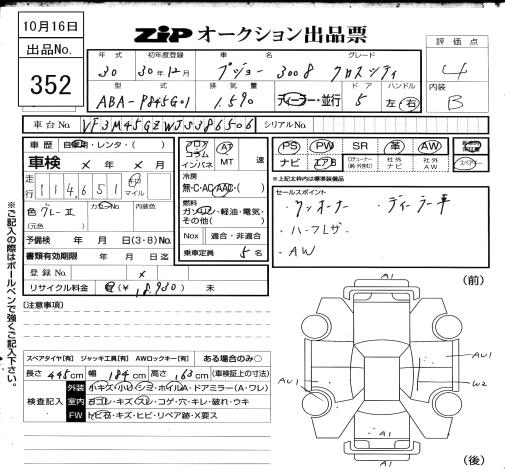 10月16日
出品No.
352
ZIP オークション出品票
評価点
4
内装
B
年式 初年度登録 車名 グレード
30 30年12月 プジョー 3008 クロスシティ
型式 排気量 ドア ハンドル
ABA-P845G01 1.590 ディーラー・並行 5 左・右
車台No. VF3M45GZWJS386506 シリアルNo.
車歴 自家用・レンタ・( )
車検 × 年 × 月
走行 114,651 キロ マイル
色 グレーⅡ カラーNo. 内装色
(元色)
予備検 年 月 日(3・8)No.
書類有効期限 年 月 日迄
登録No. ×
リサイクル料金 有(¥18,980) 未
フロア コラム インパネ AT MT 速
冷房
無・C・AC・AAC・( )
燃料
ガソリン・軽油・電気・その他( )
Nox 適合・非適合
乗車定員 5名
PS PW SR 革 AW
ナビ エアB 社外ナビ 社外AW
スペアキー
★上記太枠内は標準装備品
セールスポイント
・ワンオーナー ・ディーラー車
・ハーフレザー
・AW
[注意事項]
スペアタイヤ[有] ジャッキ工具[有] AWロックキー[有] ある場合のみ○
長さ 445cm 幅 184cm 高さ 163cm (車検証上の寸法)
検査記入
外装 小キズ・小凹・シミ・ホイルA・ドアミラー(A・ワレ)
室内 ヨゴレ・キズ・スレ・コゲ・穴・キレ・破れ・ウキ
FW トビ石・キズ・ヒビ・リペア跡・X要ス
※ご記入の際はボールペンで強くご記入下さい。
(前)
A1
AU1
AU1
W2
A1
(後)